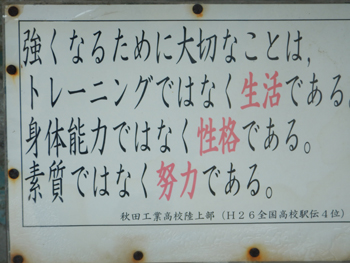 強くなるために大切なことは,
トレーニングではなく生活である。
身体能力ではなく性格である。
素質ではなく努力である。
秋田工業高校陸上部（H26全国高校駅伝4位）